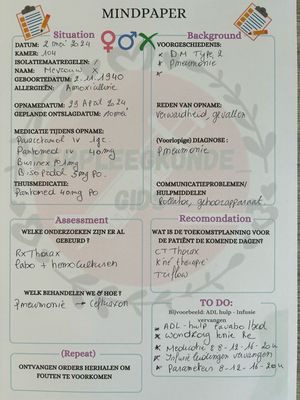 MINDPAPER
Situation
DATUM: 2 mei 2024
KAMER: 104
ISOLATIEMAATREGELEN: /
NAAM: Mevrouw X
GEBOORTEDATUM: 2.11.1940
ALLERGIEËN: Amoxicilline
OPNAMEDATUM: 29 April 2024
GEPLANDE ONTSLAGDATUM: 10 mei
MEDICATIE TIJDENS OPNAME:
Paracetamol IV 1gr
Pantomed IV 40mg
Burinex PO 1mg
Bisoprolol 5mg PO
THUISMEDICATIE:
Pantomed 40mg PO
Background
VOORGESCHIEDENIS:
* DM Type 2
* Pneumonie
*
REDEN VAN OPNAME:
Verwardheid, gevallen
(Voorlopige) DIAGNOSE:
Pneumonie
COMMUNICATIEPROBLEMEN/
HULPMIDDELEN
Rollator, gehoorapparaat
Assessment
WELKE ONDERZOEKEN ZIJN ER AL
GEBEURD?
RX Thorax
Labo + hemoculturen
WELK BEHANDELEN WE & HOE?
Pneumonie → Ceftriaxon
(Repeat)
ONTVANGEN ORDERS HERHALEN OM
FOUTEN TE VOORKOMEN
Recomondation
WAT IS DE TOEKOMSTPLANNING VOOR
DE PATIËNT DE KOMENDE DAGEN?
CT Thorax
Kiné therapie
Triflow
TO DO:
Bijvoorbeeld: ADL hulp - Infusie
vervangen
* ADL-hulp lavabo/bed
* Wondzorg knie
* Medicatie 8-12-16-20u
* Infuusleidingen vervangen
* Parameters 8-12-16-20u